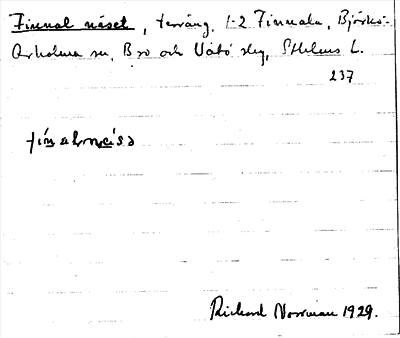 Finnal näset, terräng, 1-2 Finnala, Björkö-
Arholma sn, Bro och Vätö slg, Sthlms L.
237
fìnalnä̀sə
Rickard Norrman 1929.